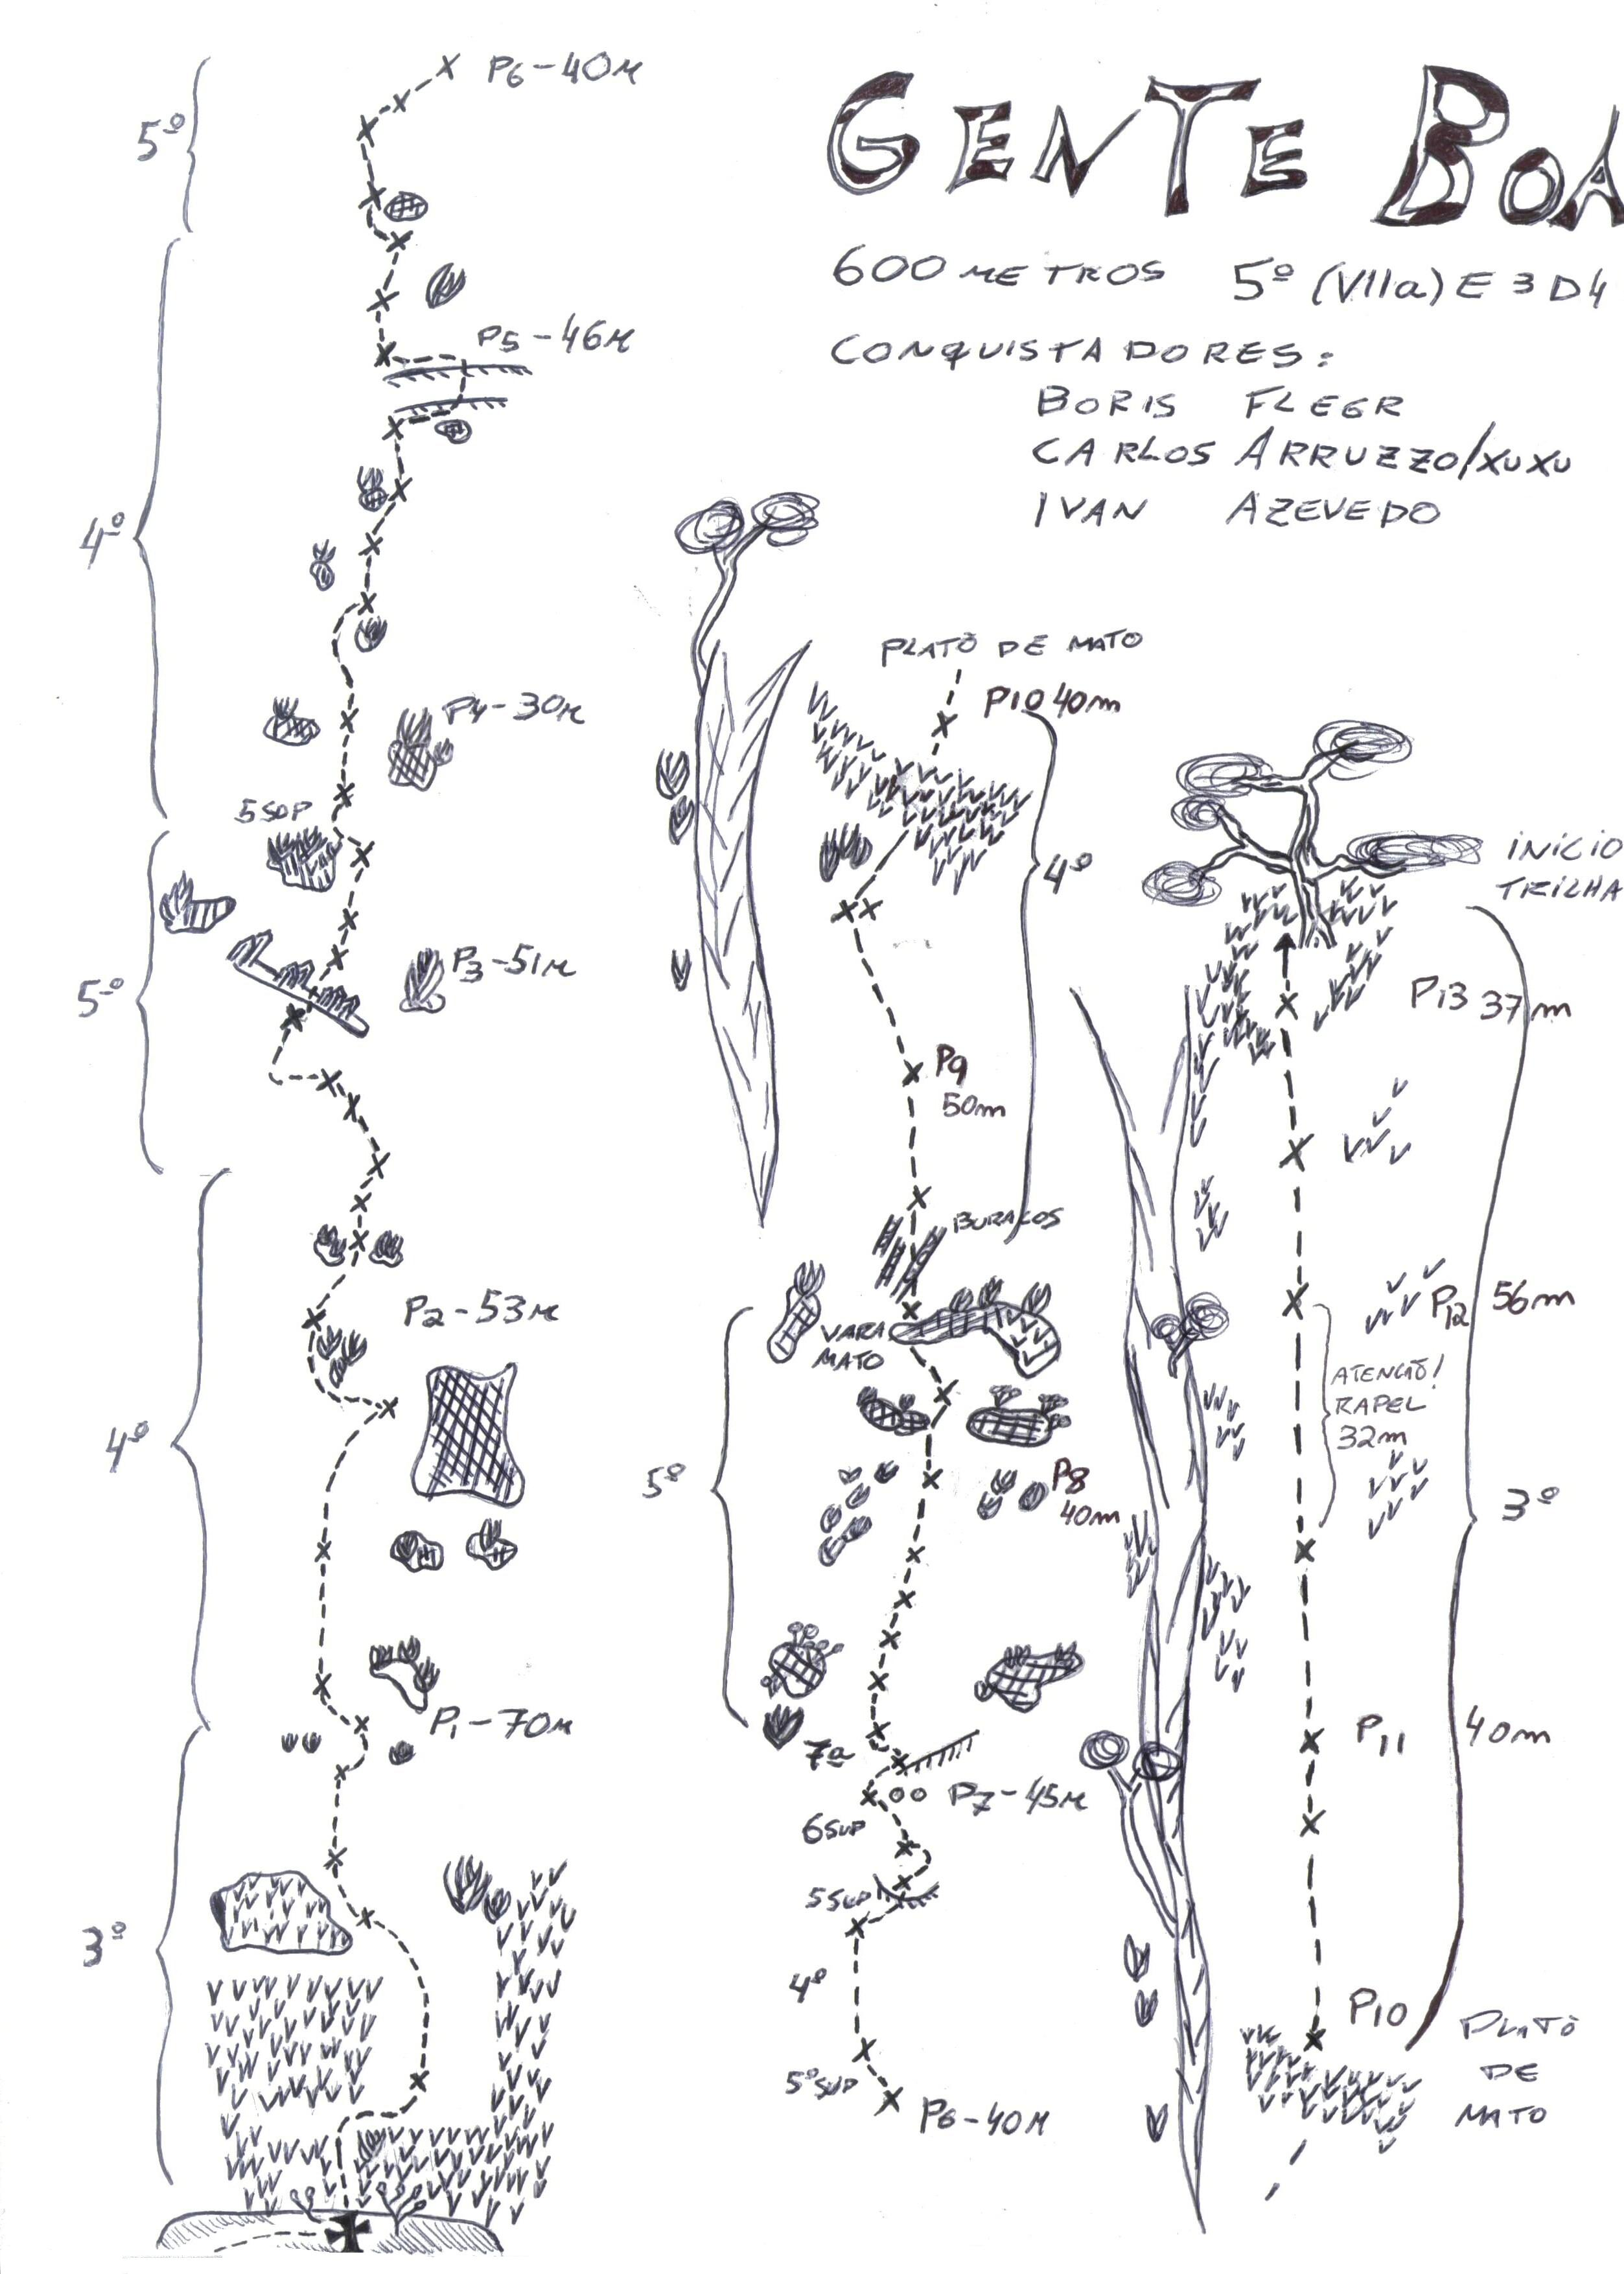 GENTE BOA
600 METROS 5º (VIIa) E3 D4
CONQUISTADORES:
BORIS FLEGR
CARLOS ARRUZZO/XUXU
IVAN AZEVEDO
P6-40M
5º
P5-46M
4º
P4-30M
5SUP
P3-51M
5º
P2-53M
4º
P1-70M
3º
PLATÔ DE MATO
P10 40m
4º
P9
50m
BURACOS
VARA
MATO
5º
P8
40m
7a
P7-45M
6SUP
5SUP
4º
5ºSUP
P6-40M
INÍCIO
TRILHA
P13 37m
P12 56m
ATENÇÃO!
RAPEL
32m
3º
P11 40m
P10
PLATÔ
DE
MATO